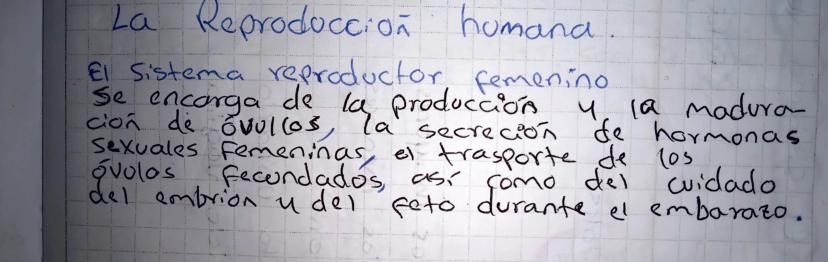 La Reproducción humana.
El sistema reproductor femenino
se encarga de la producción y la madura-
ción de óvulos, la secreción de hormonas
sexuales femeninas, el trasporte de los
óvolos fecundados, así como del cuidado
del embrión y del feto durante el embarazo.